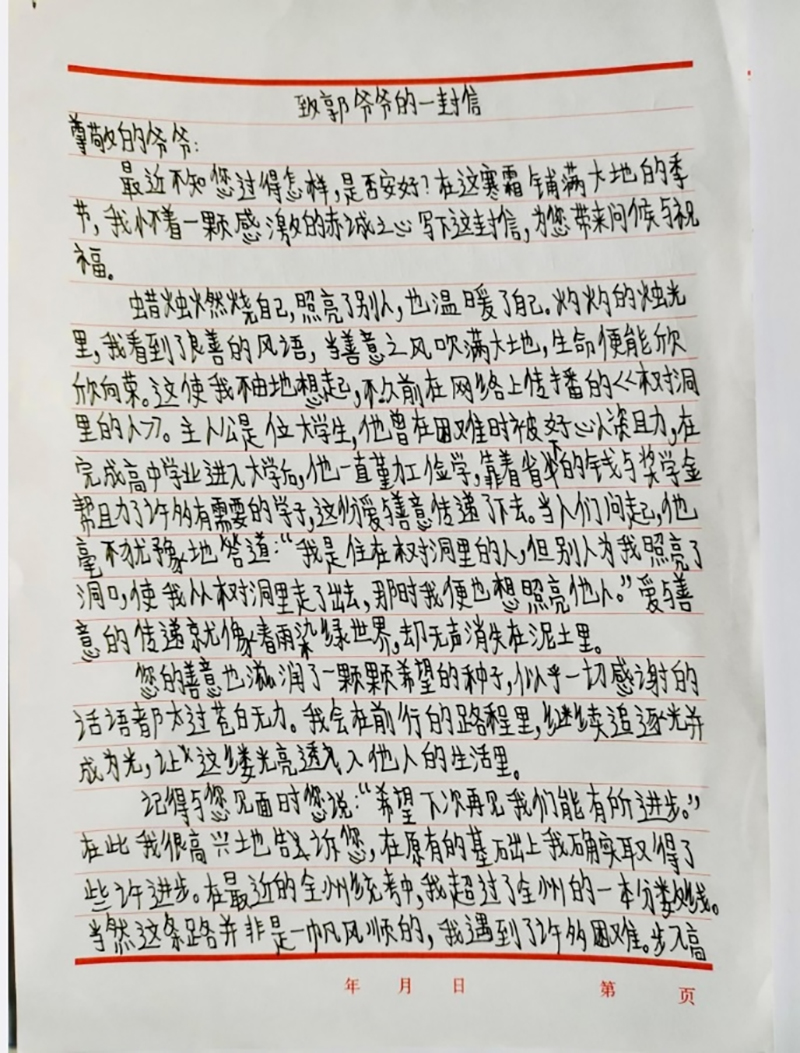 致郭爷爷的一封信
尊敬的爷爷:
最近不知您过得怎样,是否安好?在这寒霜铺满大地的季
节,我怀着一颗感激的赤诚之心写下这封信,为您带来问候与祝
福。
蜡烛燃烧自己,照亮了别人,也温暖了自己.灼灼的烛光
里,我看到了良善的风语,当善意之风吹满大地,生命便能欣
欣向荣。这使我不由地想起,不久前在网络上传播的<<树洞
里的人>>。主人公是位大学生,他曾在困难时被好心人资助,在
完成高中学业进入大学后,他一直勤工俭学,靠着省下的钱与奖学金
帮助了许多有需要的学子,这份爱与善意传递了下去。当人们问起,他
毫不犹豫地答道:“我是住在树洞里的人,但别人为我照亮了
洞口,使我从树洞里走了出去,那时我便也想照亮他人。”爱与善
意的传递就像春雨染绿世界,却无声消失在泥土里。
您的善意也滋润了一颗颗希望的种子,似乎一切感谢的
话语都太过苍白无力。我会在前行的路程里,继续追逐光并
成为光,让这缕光亮透入他人的生活里。
记得与您见面时您说:“希望下次再见我们能有所进步。”
在此我很高兴地告诉您,在原有的基础上我确实取得了
些许进步。在最近的全州统考中,我超过了全州的一本分数线。
当然这条路并非是一帆风顺的,我遇到了许多困难。步入高
年 月 日 第 页